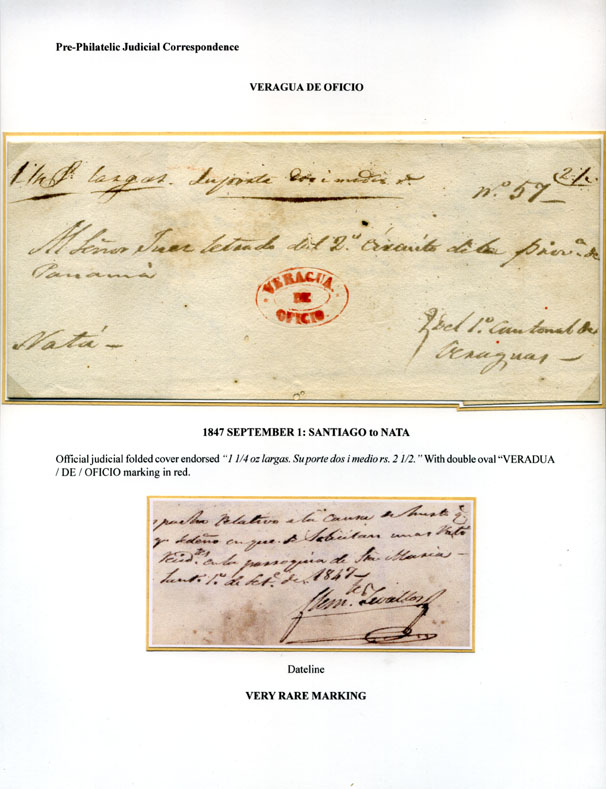 Pre-Philatelic Judicial Correspondence
VERAGUA DE OFICIO
largas. Su porte dos i medio rs. 2 1/2
nº 57
Al Señor Juez letrado del 2º Circuito de la prov.a de
Panamá
VERAGUA
DE
OFICIO
Del 1º Cantonal de
Natá
Veraguas
1847 SEPTEMBER 1: SANTIAGO to NATA
Official judicial folded cover endorsed "1 1/4 oz largas. Su porte dos i medio rs. 2 1/2." With double oval "VERADUA
/ DE / OFICIO marking in red.
relativo a la causa de
en que se solicitan unas
en la parroquia de Sta Maria
Santº 1º de Setº de 1847
Dateline
VERY RARE MARKING